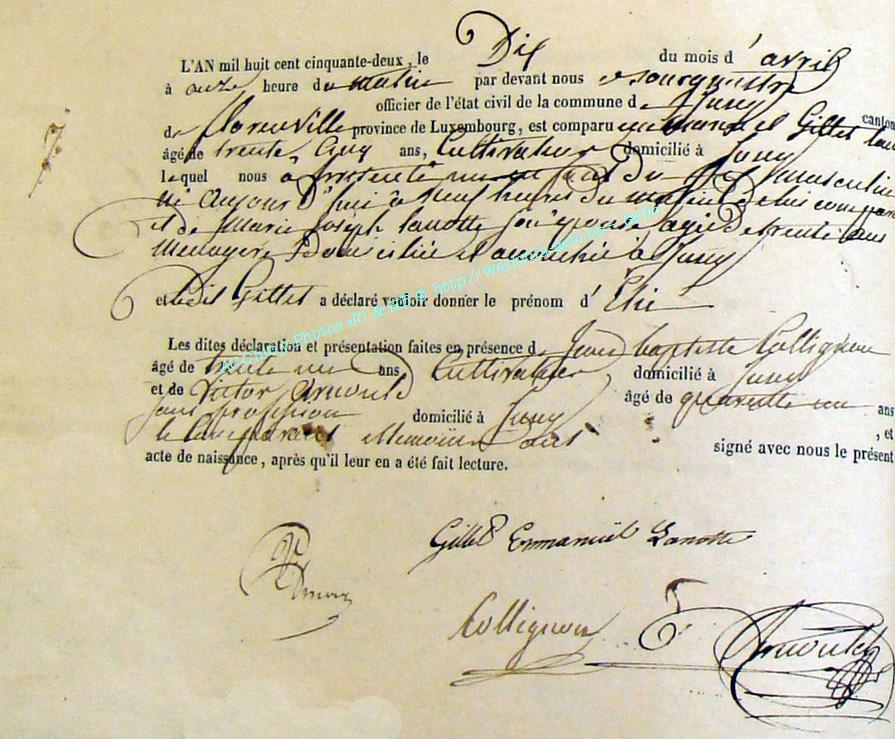 L'AN mil huit cent cinquante-deux, le Dix du mois d' avril
à onze heure du matin par devant nous Bourgmestre
officier de l'état civil de la commune de Jzuy
canton
de florenville province de Luxembourg, est comparu emmanuel Gillet
âgé de trente cinq ans, Cultivateur domicilié à
lequel nous a présenté un enfant du sexe masculin
né aujourd'hui à neuf heures du matin de lui comparant
et de Marie Joseph lanotte son épouse agée de trente ans
Menagere domiciliée et accouchée à
et ledit Gillet a déclaré vouloir donner le prénom d' Elie
Les dites déclaration et présentation faites en présence de Jean baptiste Collignon
âgé de trente un ans Cultivateur, domicilié à
et de Victor Arnould âgé de quarante un ans
sans profession domicilié à , et
le Comparant et témoins ont signé avec nous le présent
acte de naissance, après qu'il leur en a été fait lecture.
Gillet Emmanuël Lanotte
Collignon Arnould